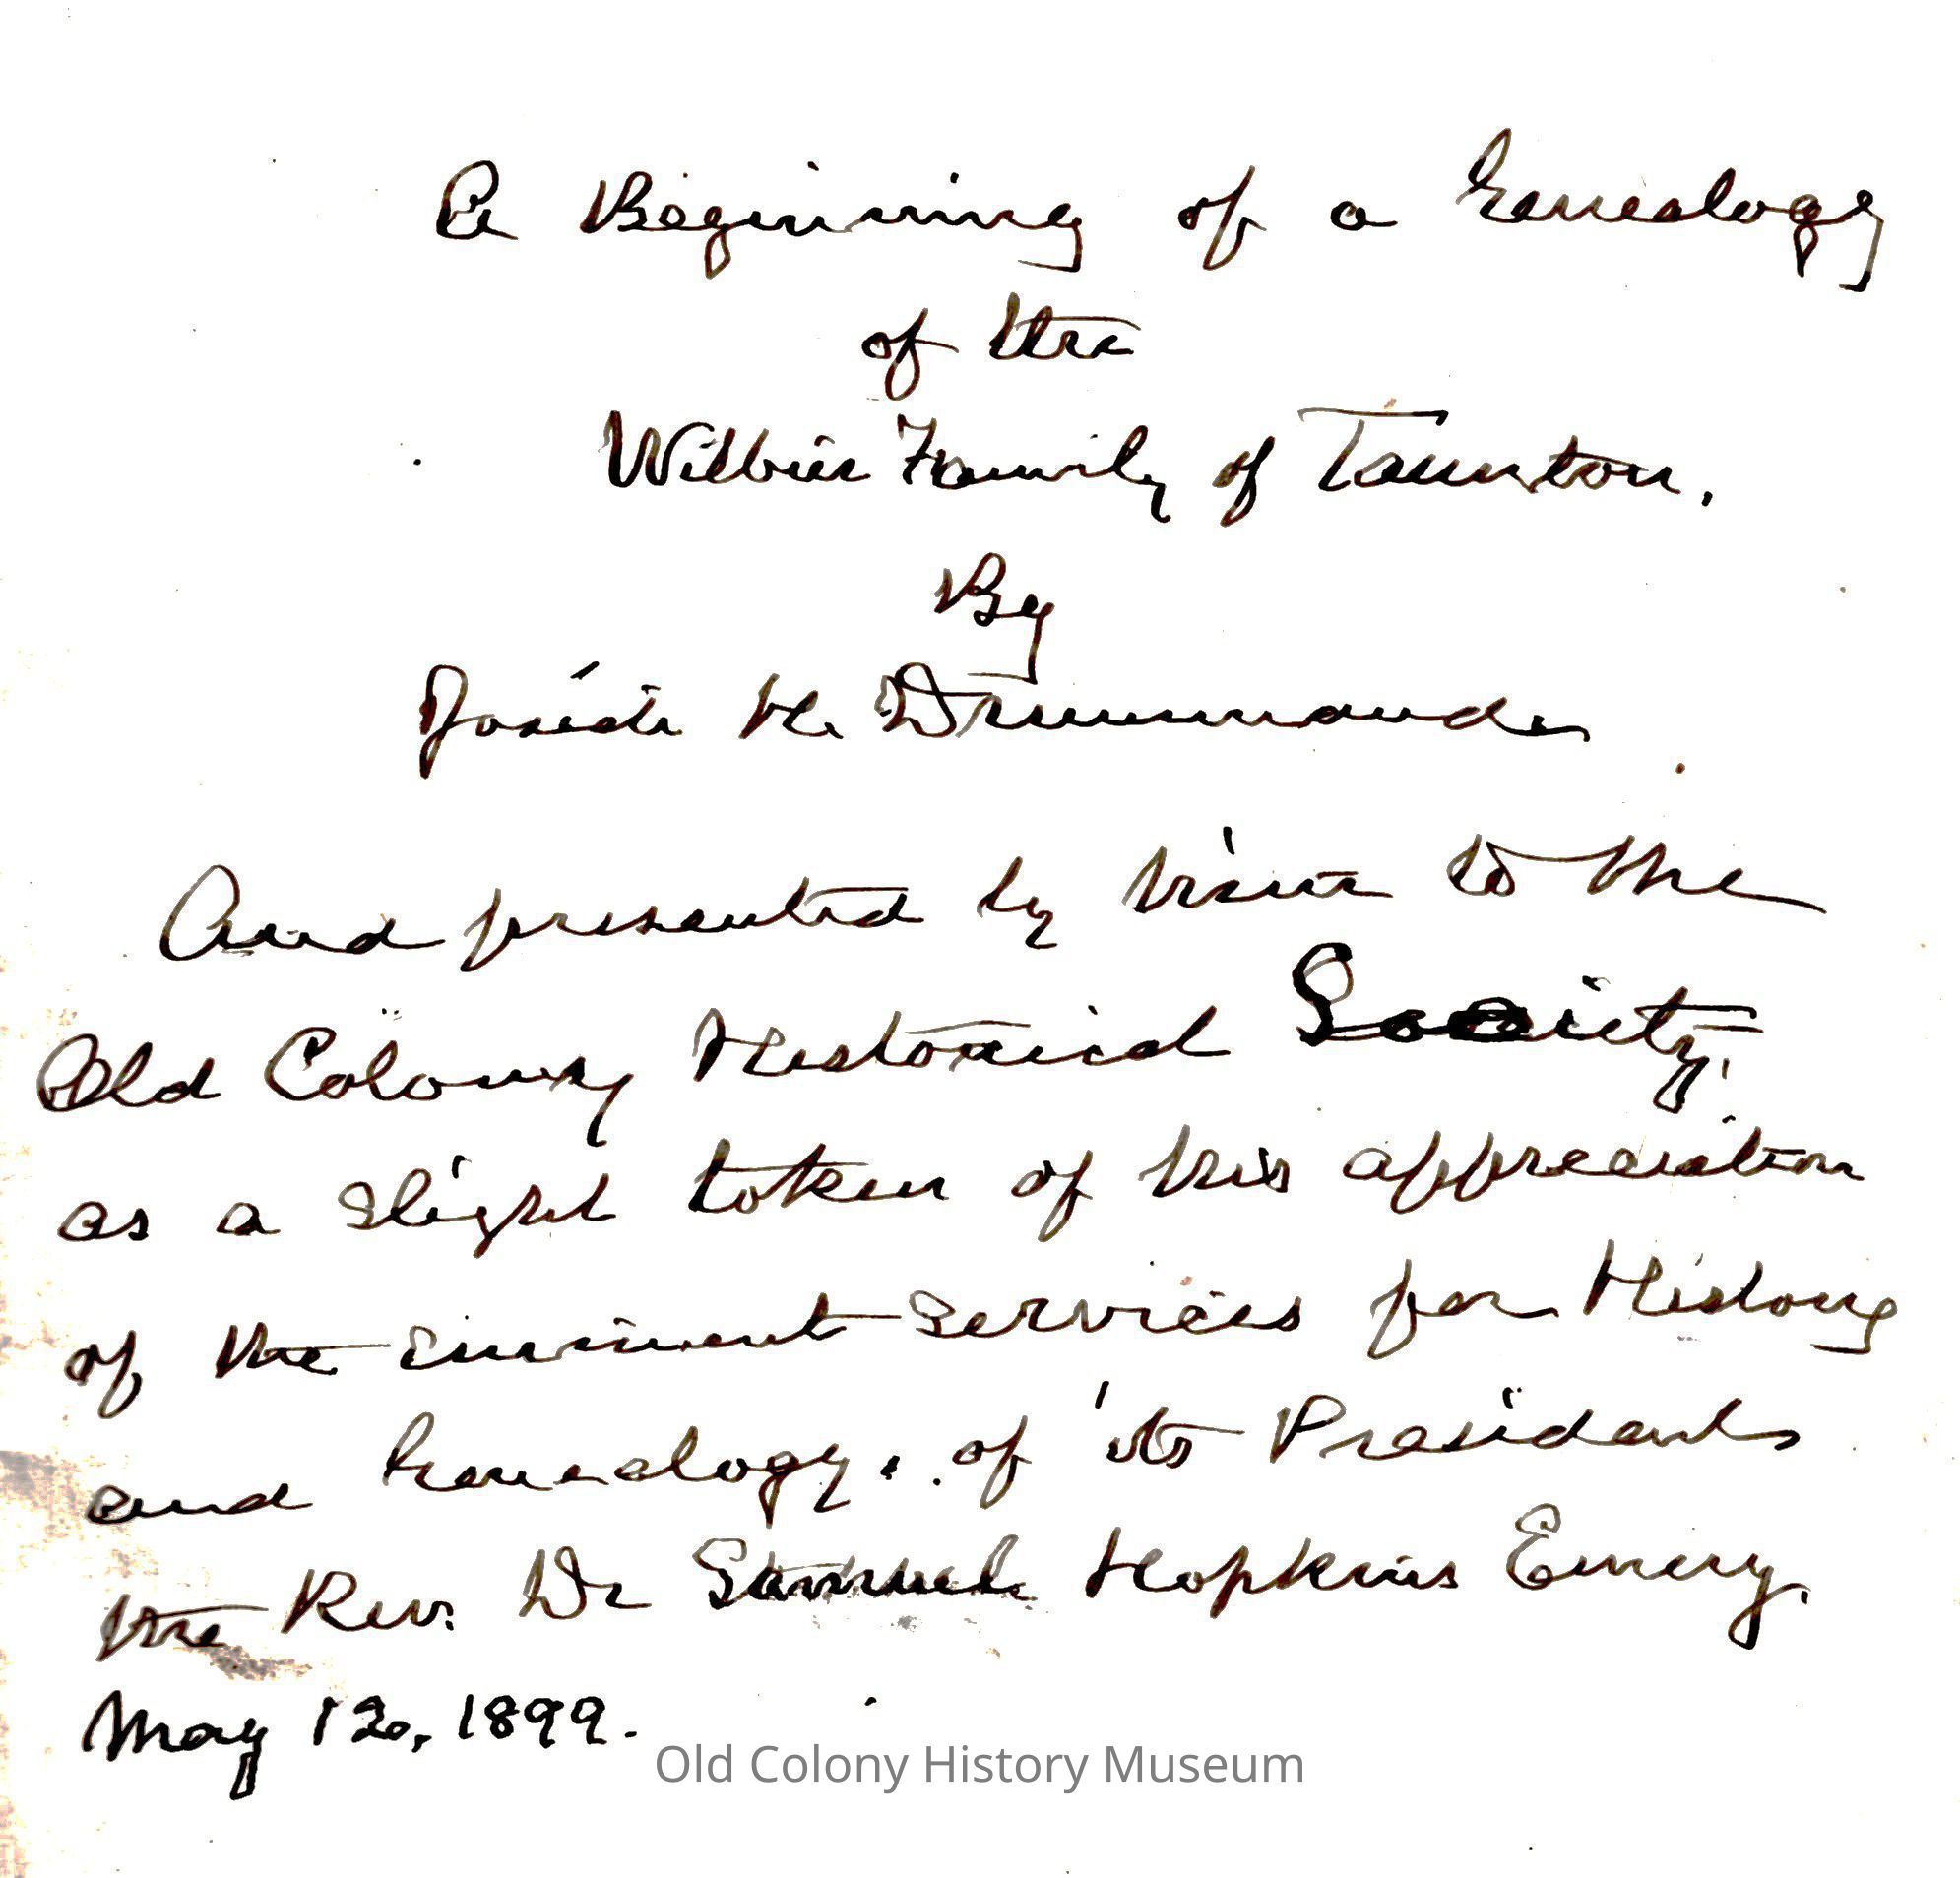 A Beginning of a Genealogy
of the
Wilbur Family of Taunton.
By
Josiah H. Drummond
And presented by him to the
Old Colony Historical Society,
as a slight token of his appreciation
of the eminent services for History
and Genealogy, of its President
the Rev. Dr Samuel Hopkins Emery.
May 12, 1899.
Old Colony History Museum